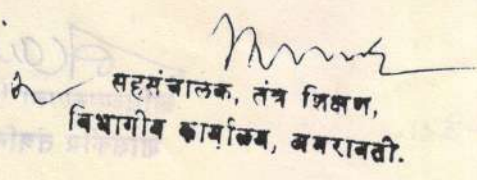 सहसंचालक, तंत्र शिक्षण,
विभागीय कार्यालय, अमरावती.